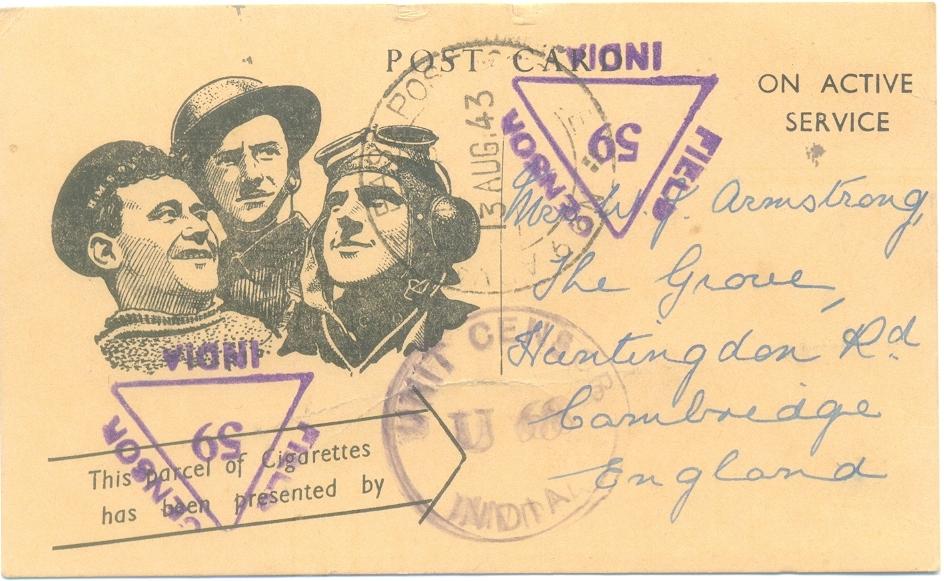 POST CARD
ON ACTIVE
SERVICE
INDIA
FIELD
CENSOR
59
POST
13 AUG.43
Armstrong,
The Grove,
Huntingdon Rd
Cambridge
England
INDIA
FIELD
CENSOR
59
UNIT CENSOR
U 68
INDIA
This parcel of Cigarettes
has been presented by